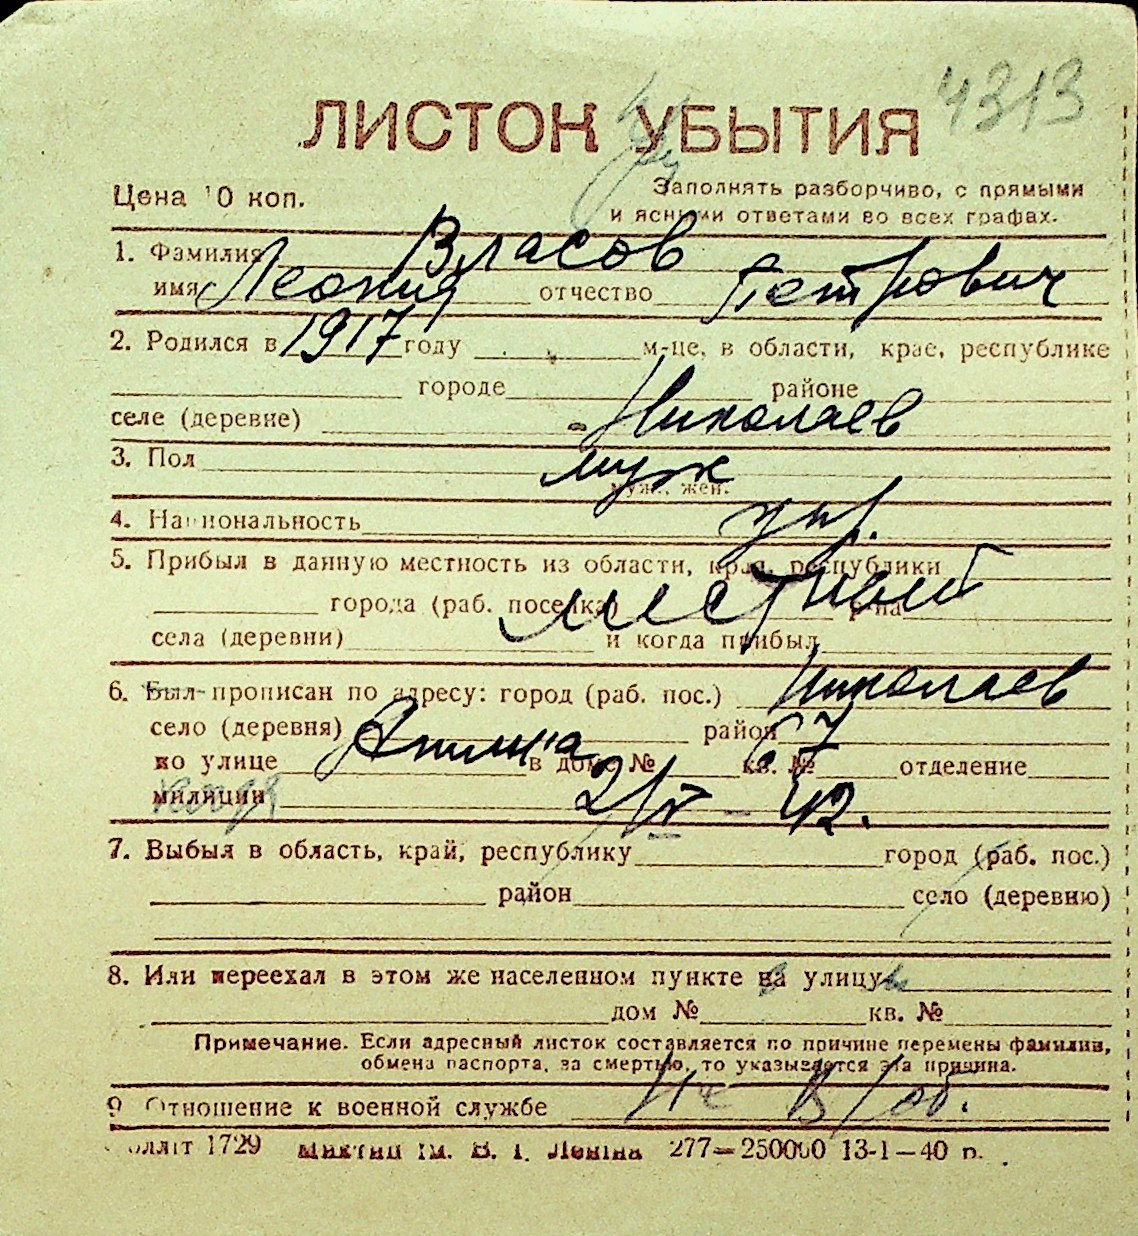 4313
ЛИСТОК УБЫТИЯ
Цена 10 коп.
Заполнять разборчиво, с прямыми
и ясными ответами во всех графах.
1. Фамилия Власов
имя Леонид отчество Петрович
2. Родился в 1917 году м-це, в области, крае, республике
городе районе
селе (деревне) Николаев
3. Пол муж
муж., жен.
4. Национальность укр.
5. Прибыл в данную местность из области, края, республики
города (раб. поселка) местный р-на
села (деревни) и когда прибыл
6. Был прописан по адресу: город (раб. пос.) Николаев
село (деревня) район
по улице в доме № 67 кв. № отделение
милиции 2/V - 42.
7. Выбыл в область, край, республику город (раб. пос.)
район село (деревню)
8. Или переехал в этом же населенном пункте на улицу
дом № кв. №
Примечание. Если адресный листок составляется по причине перемены фамилии,
обмена паспорта, за смертью, то указывается эта причина.
9 Отношение к военной службе Не в/об.
1729 ім. В. І. Леніна 277—250000 13-1—40 р.